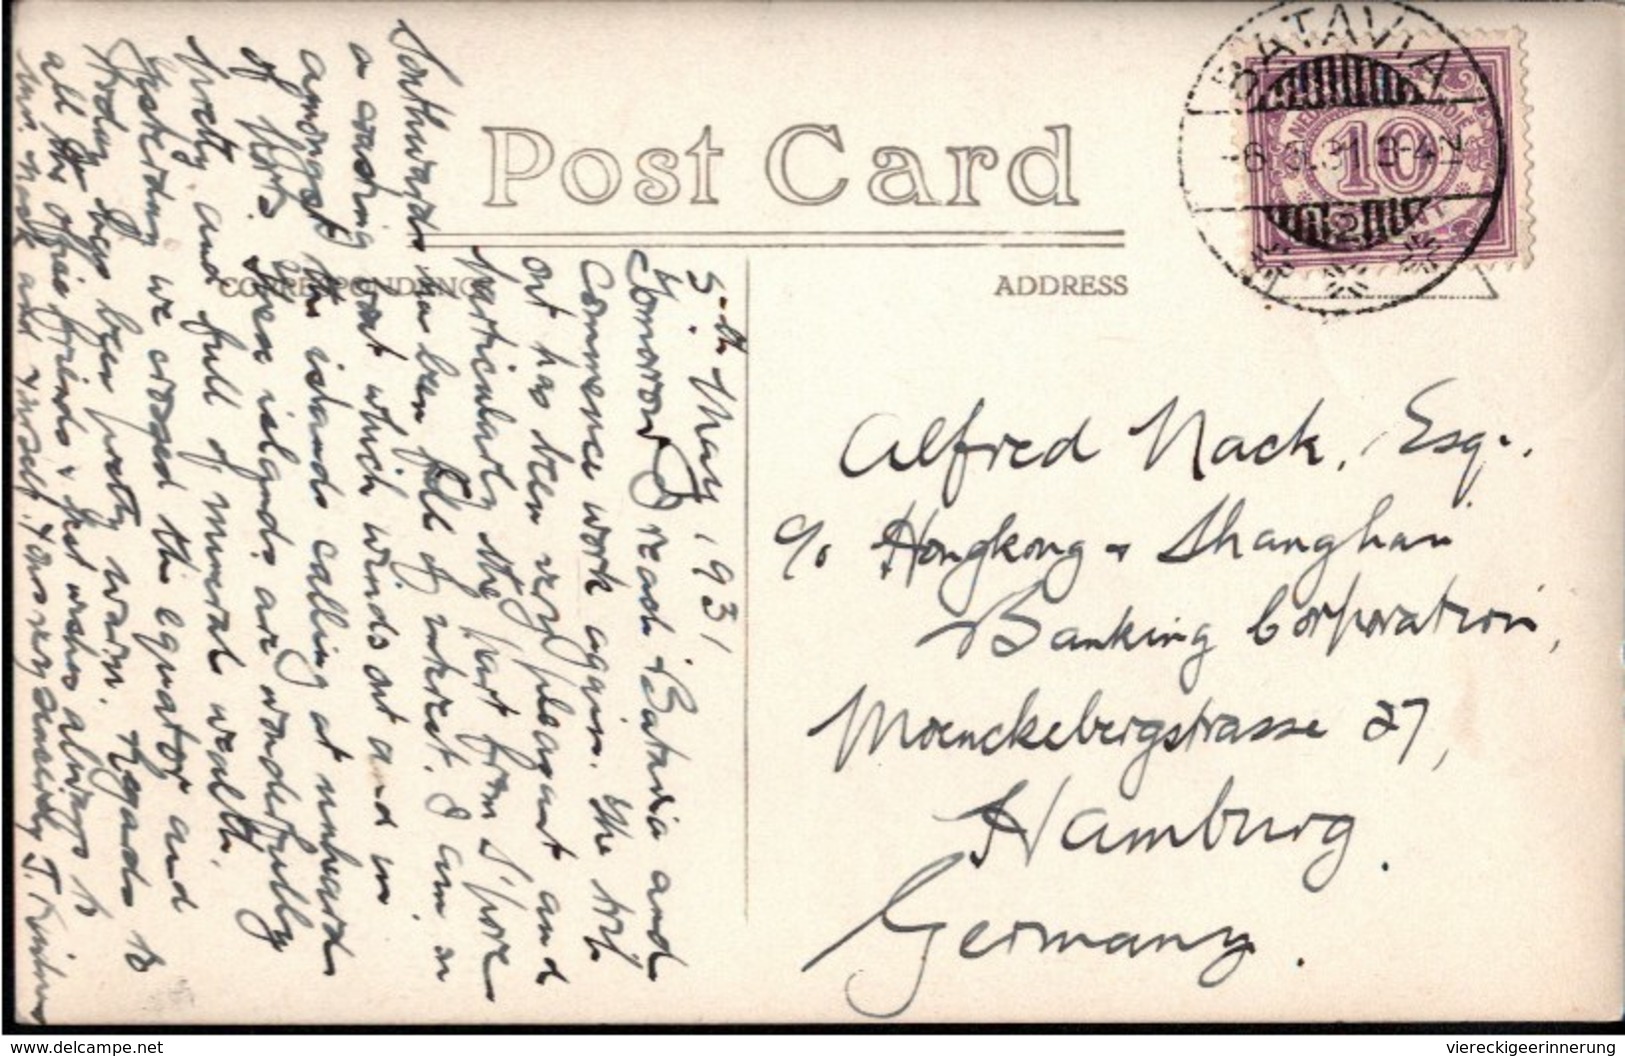 Post Card
CORRESPONDENCE
ADDRESS
BATAVIA
-6.5.31.3-4N
NED. INDIË
10
CT
2
5th May 1931
Tomorrow I reach Batavia and
commence work again. The trip
out has been very pleasant and
particularly the part from S'pore
Southwards has been full of interest. I am on
a coasting boat which winds out and in
amongst the islands calling at unheard
of ports. These islands are wonderfully
pretty and full of mineral wealth.
Yesterday we crossed the equator and
today has been pretty warm. Regards to
all the office friends & best wishes always to
Mrs. Nack and yourself. Yours very sincerely J.
Alfred Nack, Esq.,
c/o Hongkong & Shanghai
Banking Corporation,
Moenckebergstrasse 27,
Hamburg.
Germany.
www.delcampe.net
viereckigeerinnerung